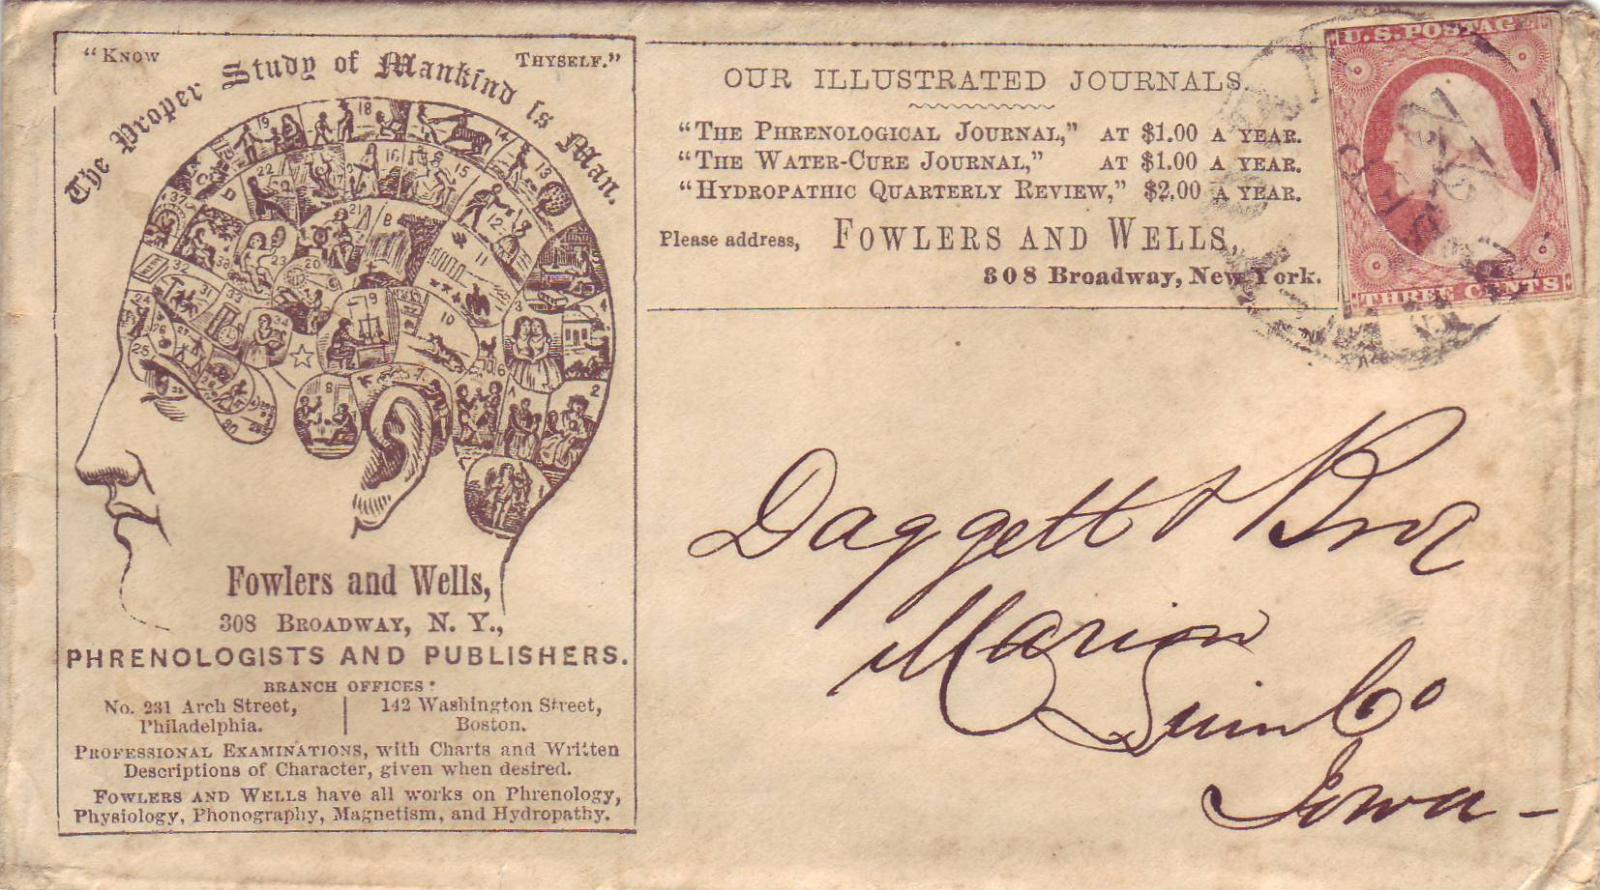 "Know Thyself."
The Proper Study of Mankind is Man.
Fowlers and Wells,
308 Broadway, N. Y.,
PHRENOLOGISTS AND PUBLISHERS.
BRANCH OFFICES:
No. 231 Arch Street,
Philadelphia.
142 Washington Street,
Boston.
Professional Examinations, with Charts and Written
Descriptions of Character, given when desired.
Fowlers and Wells have all works on Phrenology,
Physiology, Phonography, Magnetism, and Hydropathy.
OUR ILLUSTRATED JOURNALS.
"The Phrenological Journal," at $1.00 a year.
"The Water-Cure Journal," at $1.00 a year.
"Hydropathic Quarterly Review," $2.00 a year.
Please address, Fowlers and Wells,
308 Broadway, New York.
U.S. POSTAGE
THREE CENTS
Daggett & Bro
Marion
Linn Co
Iowa –